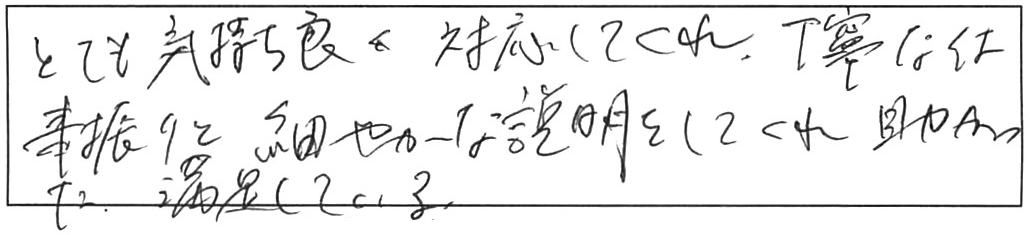 とても気持ち良く対応してくれ、丁寧な仕
事振りと細やかな説明をしてくれ助かっ
た。満足している。